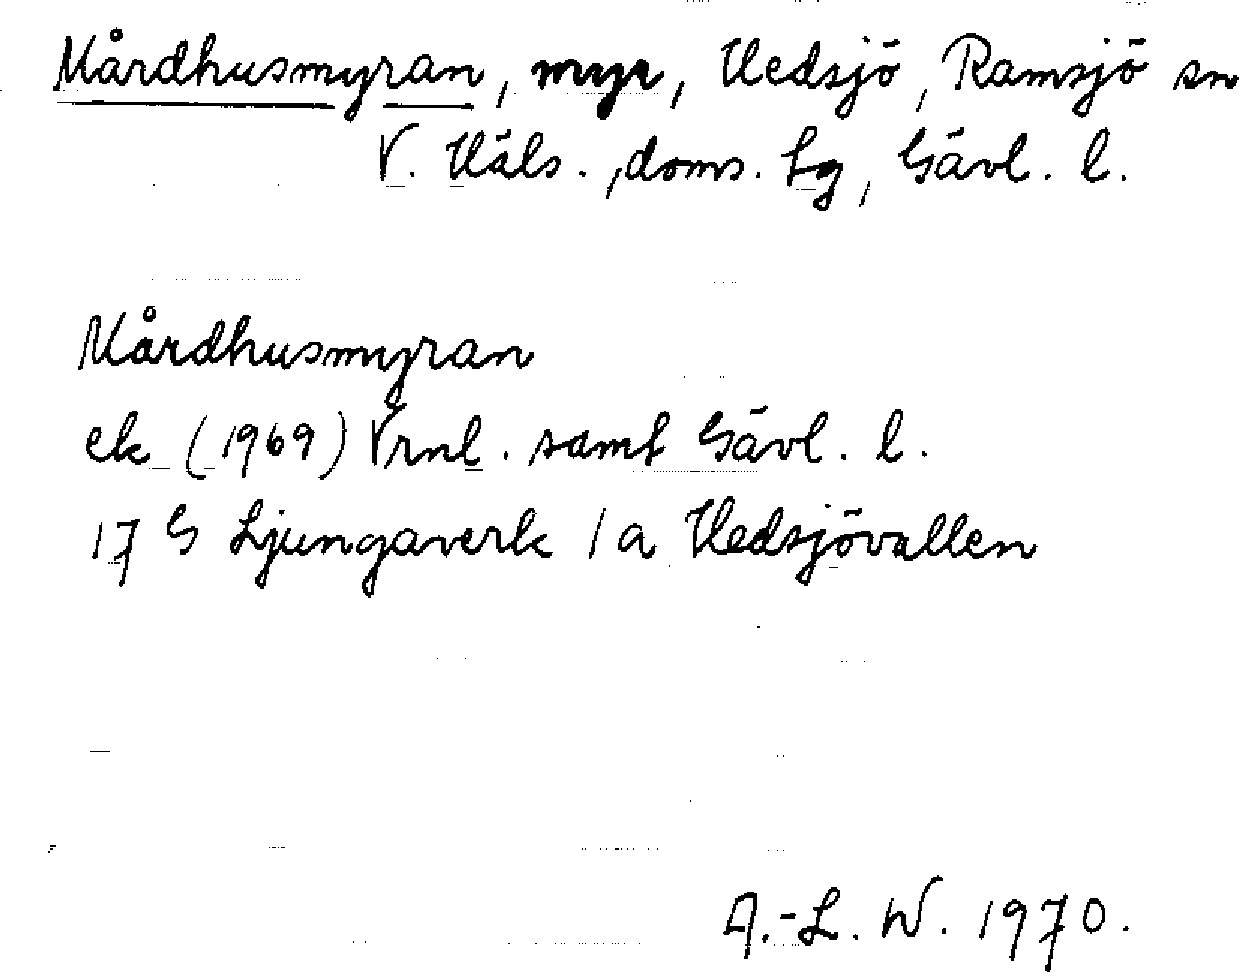 Mårdhusmyran, myr, Hedsjö, Ramsjö sn
V. Häls., doms. Lg, Gävl. l.
Mårdhusmyran
ek (1969) Vrnl. samt Gävl. l.
17 G Ljungaverk 1 a Hedsjövallen
A.-L. W. 1970.